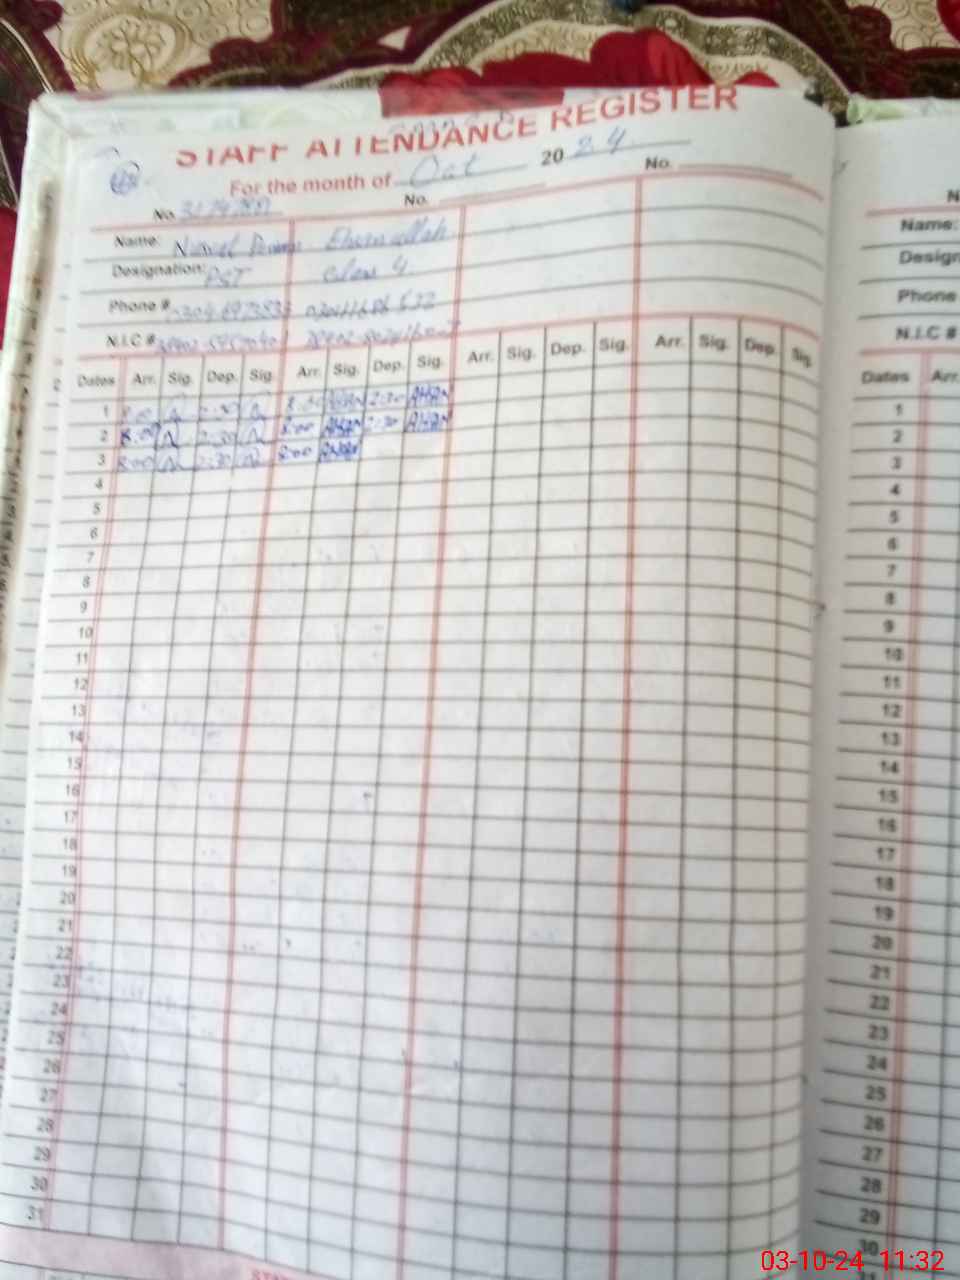 STAFF ATTENDANCE REGISTER
For the month of Oct 2024
No. No. No.
Name: Ehsanullah
Designation: PST Class 4
Phone #
N.I.C #
Dates Arr. Sig. Dep. Sig. Arr. Sig. Dep. Sig. Arr. Sig. Dep. Sig. Arr. Sig. Dep. Sig.
1 8:00 N 2:30 N 8:00 2:30
2 8:00 N 2:30 N 8:00 2:30
3 8:00 N 2:30 N 8:00
4
5
6
7
8
9
10
11
12
13
14
15
16
17
18
19
20
21
22
23
24
25
26
27
28
29
30
31
N
Name:
Design
Phone
N.I.C #
Dates Arr.
1
2
3
4
5
6
7
8
9
10
11
12
13
14
15
16
17
18
19
20
21
22
23
24
25
26
27
28
29
30
03-10-24 11:32